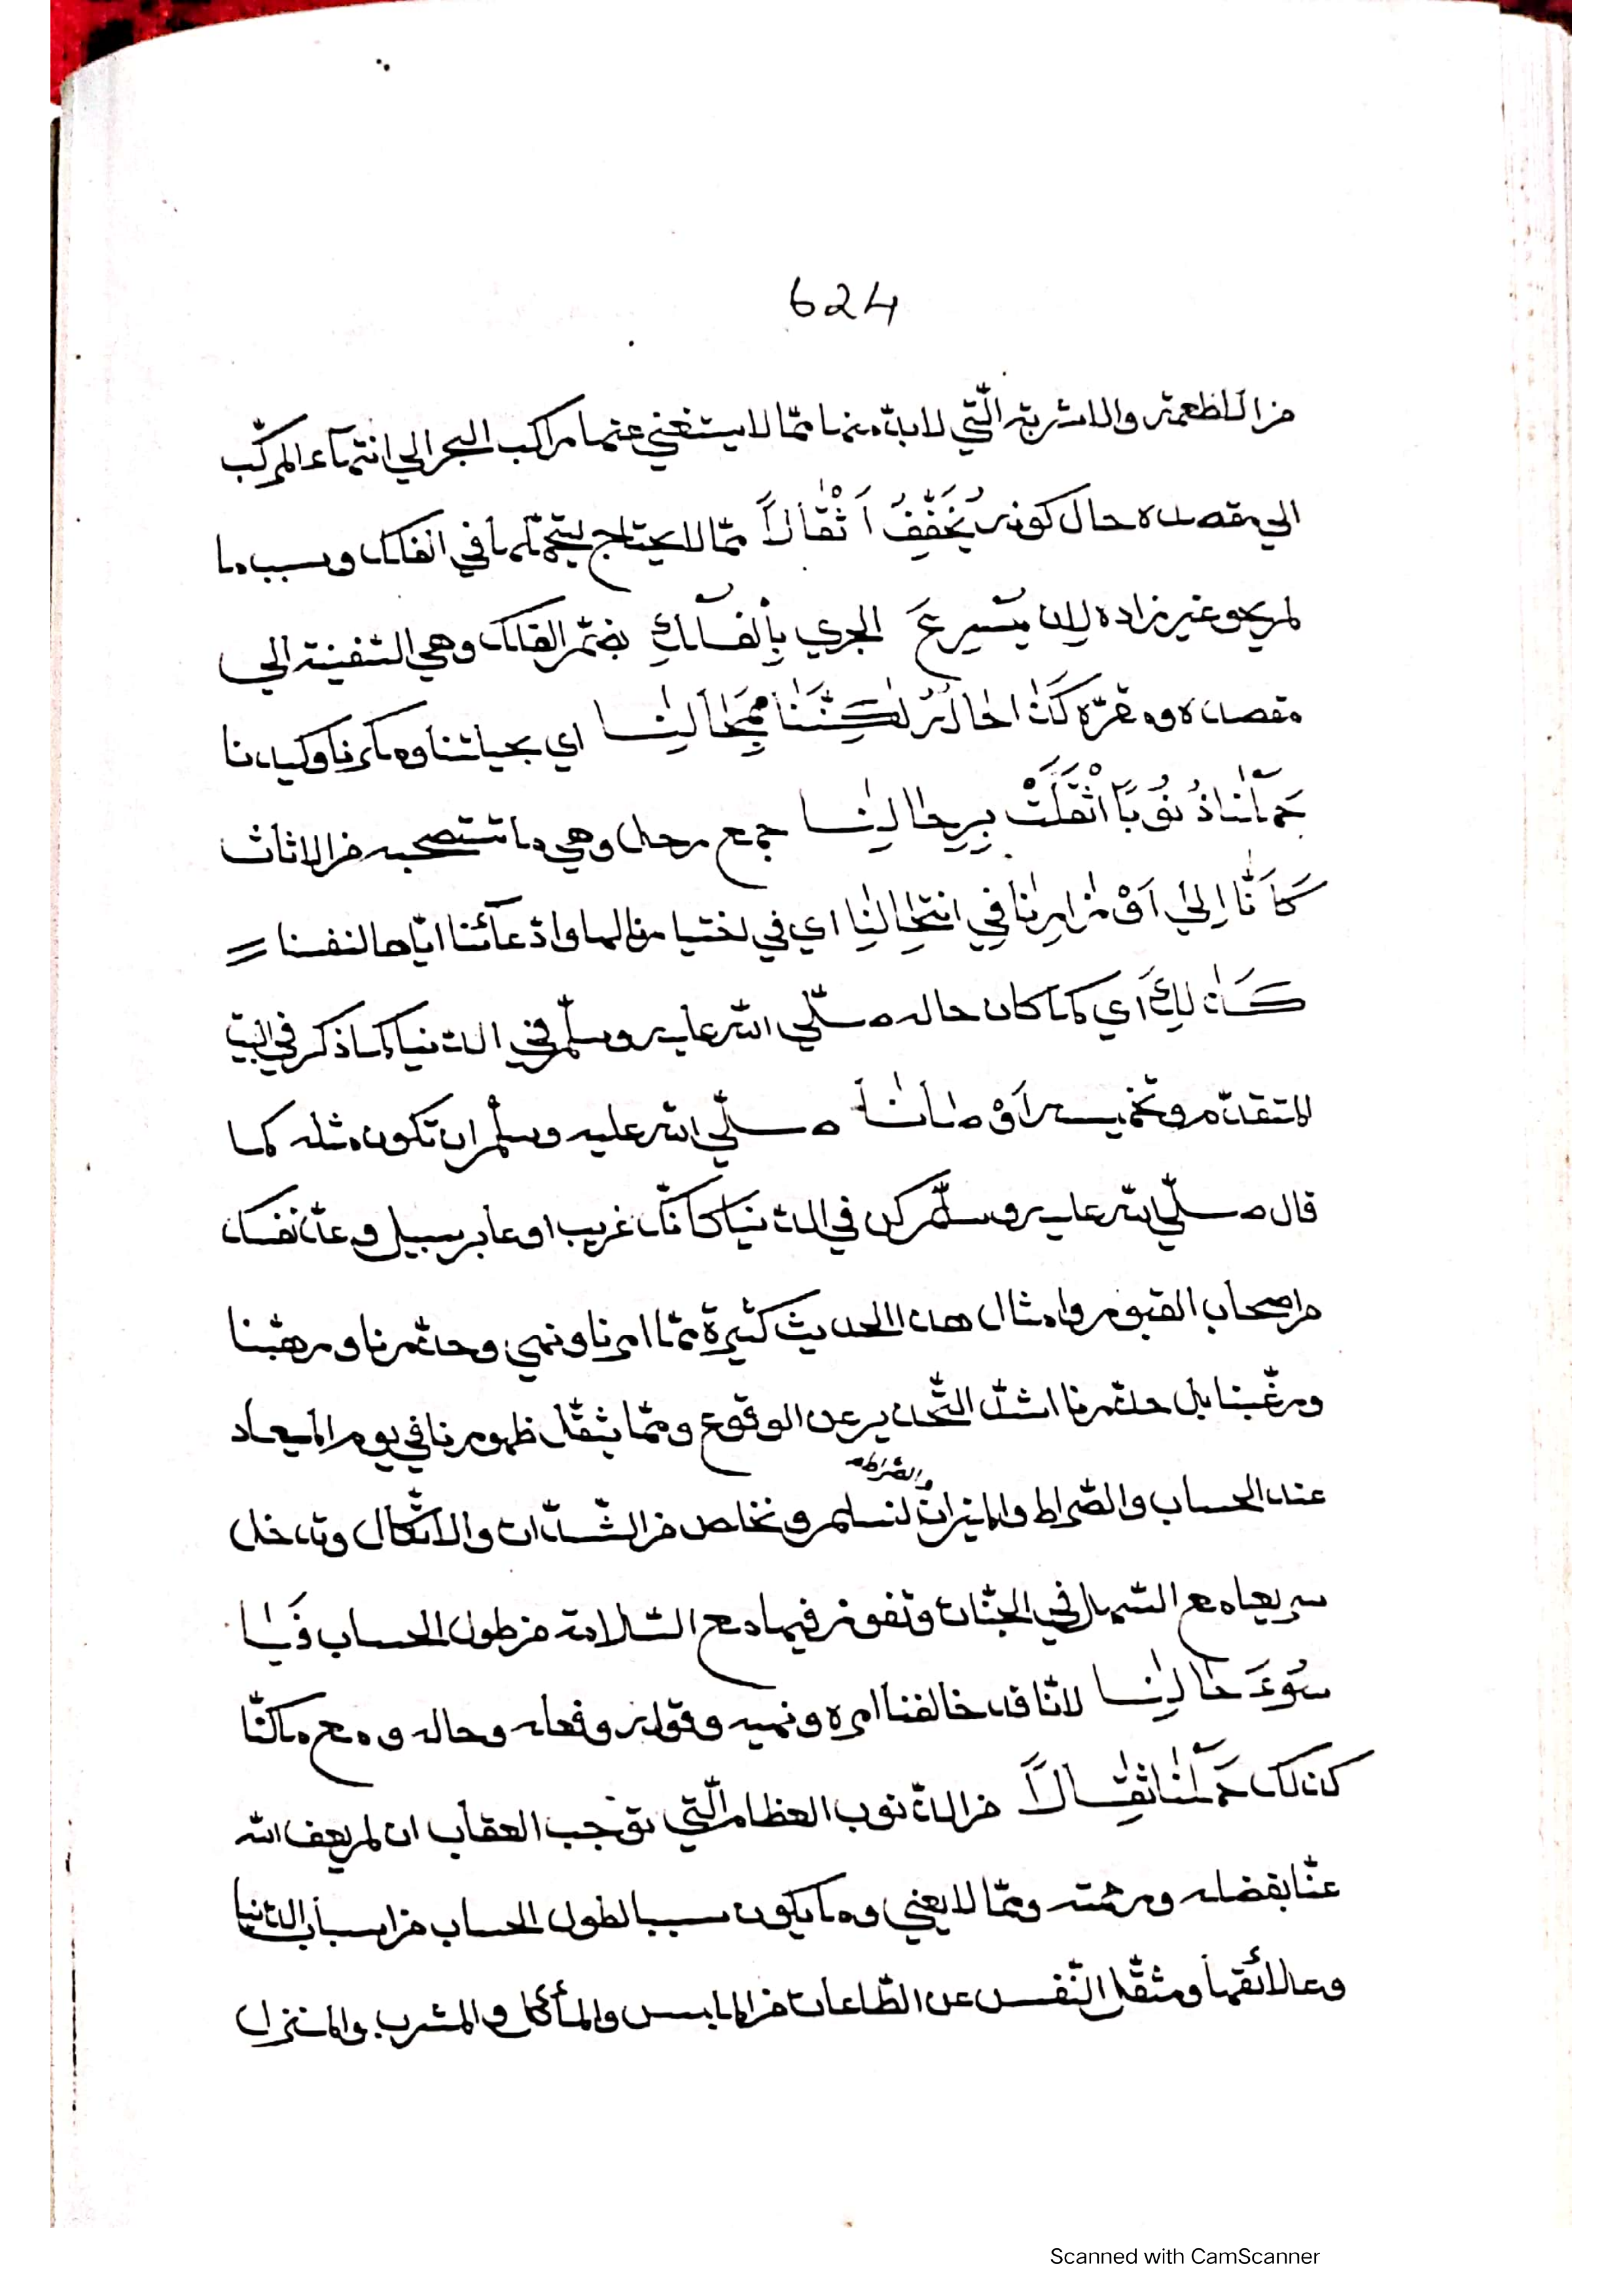 624
من الاطعمة والاشربة الّتي لابدّ منها ممّا لا يستغني عنها مراكب البحر الي انتهآء المركّب
الي مقصده حال كونه يُخَفِّفُ اَثْقَالاً ممّا لا يحتاج لتحمّلها في الفلك وبسبب ما
لم يحو غير زاده لان يَسِيرَ الجري بِالْفُلْكِ بضمّ الفلك وهي السّفينة الي
مقصده ومقرّه كَذَا الحَالُ لٰكِنَّنَا بِمِحَالِنَا اي بحياتنا ومكرنا وكيدنا
حَمَلْنَا ذُنُوبًا اَثْقَلَتْ بِرِحَالِنَا جمع رحل وهي ما تستصحبه من الاثاث
كَاَنَّا اِلٰي اَوْزَارِنَا فِي انْتِحَالِنَا اي في اختيارنا لها وادّعآئنا ايّاها لنفسنا =
كَذٰلِكَ اي كما كان حاله صلّي الله عليه وسلّم في الدّنيا كما ذكر في البيت
المتقدّم وتخميسه اَوْصَانَا صلّي الله عليه وسلّم ان تكون مثله كما
قال صلّي الله عليه وسلّم كن في الدّنيا كانّك غريب او عابر سبيل وعدّ نفسك
من اصحاب القبور وامثال هذا الحديث كثيرة ممّا امرنا ونهي وحذّرنا ورهّبنا
ورغّبنا بل حذّرنا اشدّ التّحذير عن الوقوع وممّا يثقّل ظهورنا في يوم الميعاد
والصّراط
عند الحساب والصّراط والميزان لنسلم ونخلص من الشّدّات والاثكال وندخل
سريعا مع السّهل في الجنّات ونفوز فيها مع السّلامة من طول الحساب فَيَا
سُوءَ حَالِنَا لانّا قد خالفنا امره ونهيه وقوله وفعله وحاله ومع ما كنّا
كذلك حَمَلْنَا ثِقَالاً من الذّنوب العظام الّتي توجب العقاب ان لم يعف الله
عنّا بفضله ورحمته وممّا لا يعني وما يكون سببا لطول الحساب من اسباب الدّنيا
وعلائقها ومثقّل النّفس عن الطّاعات من الملابس والمأكل والمشرب والمنزل
Scanned with CamScanner